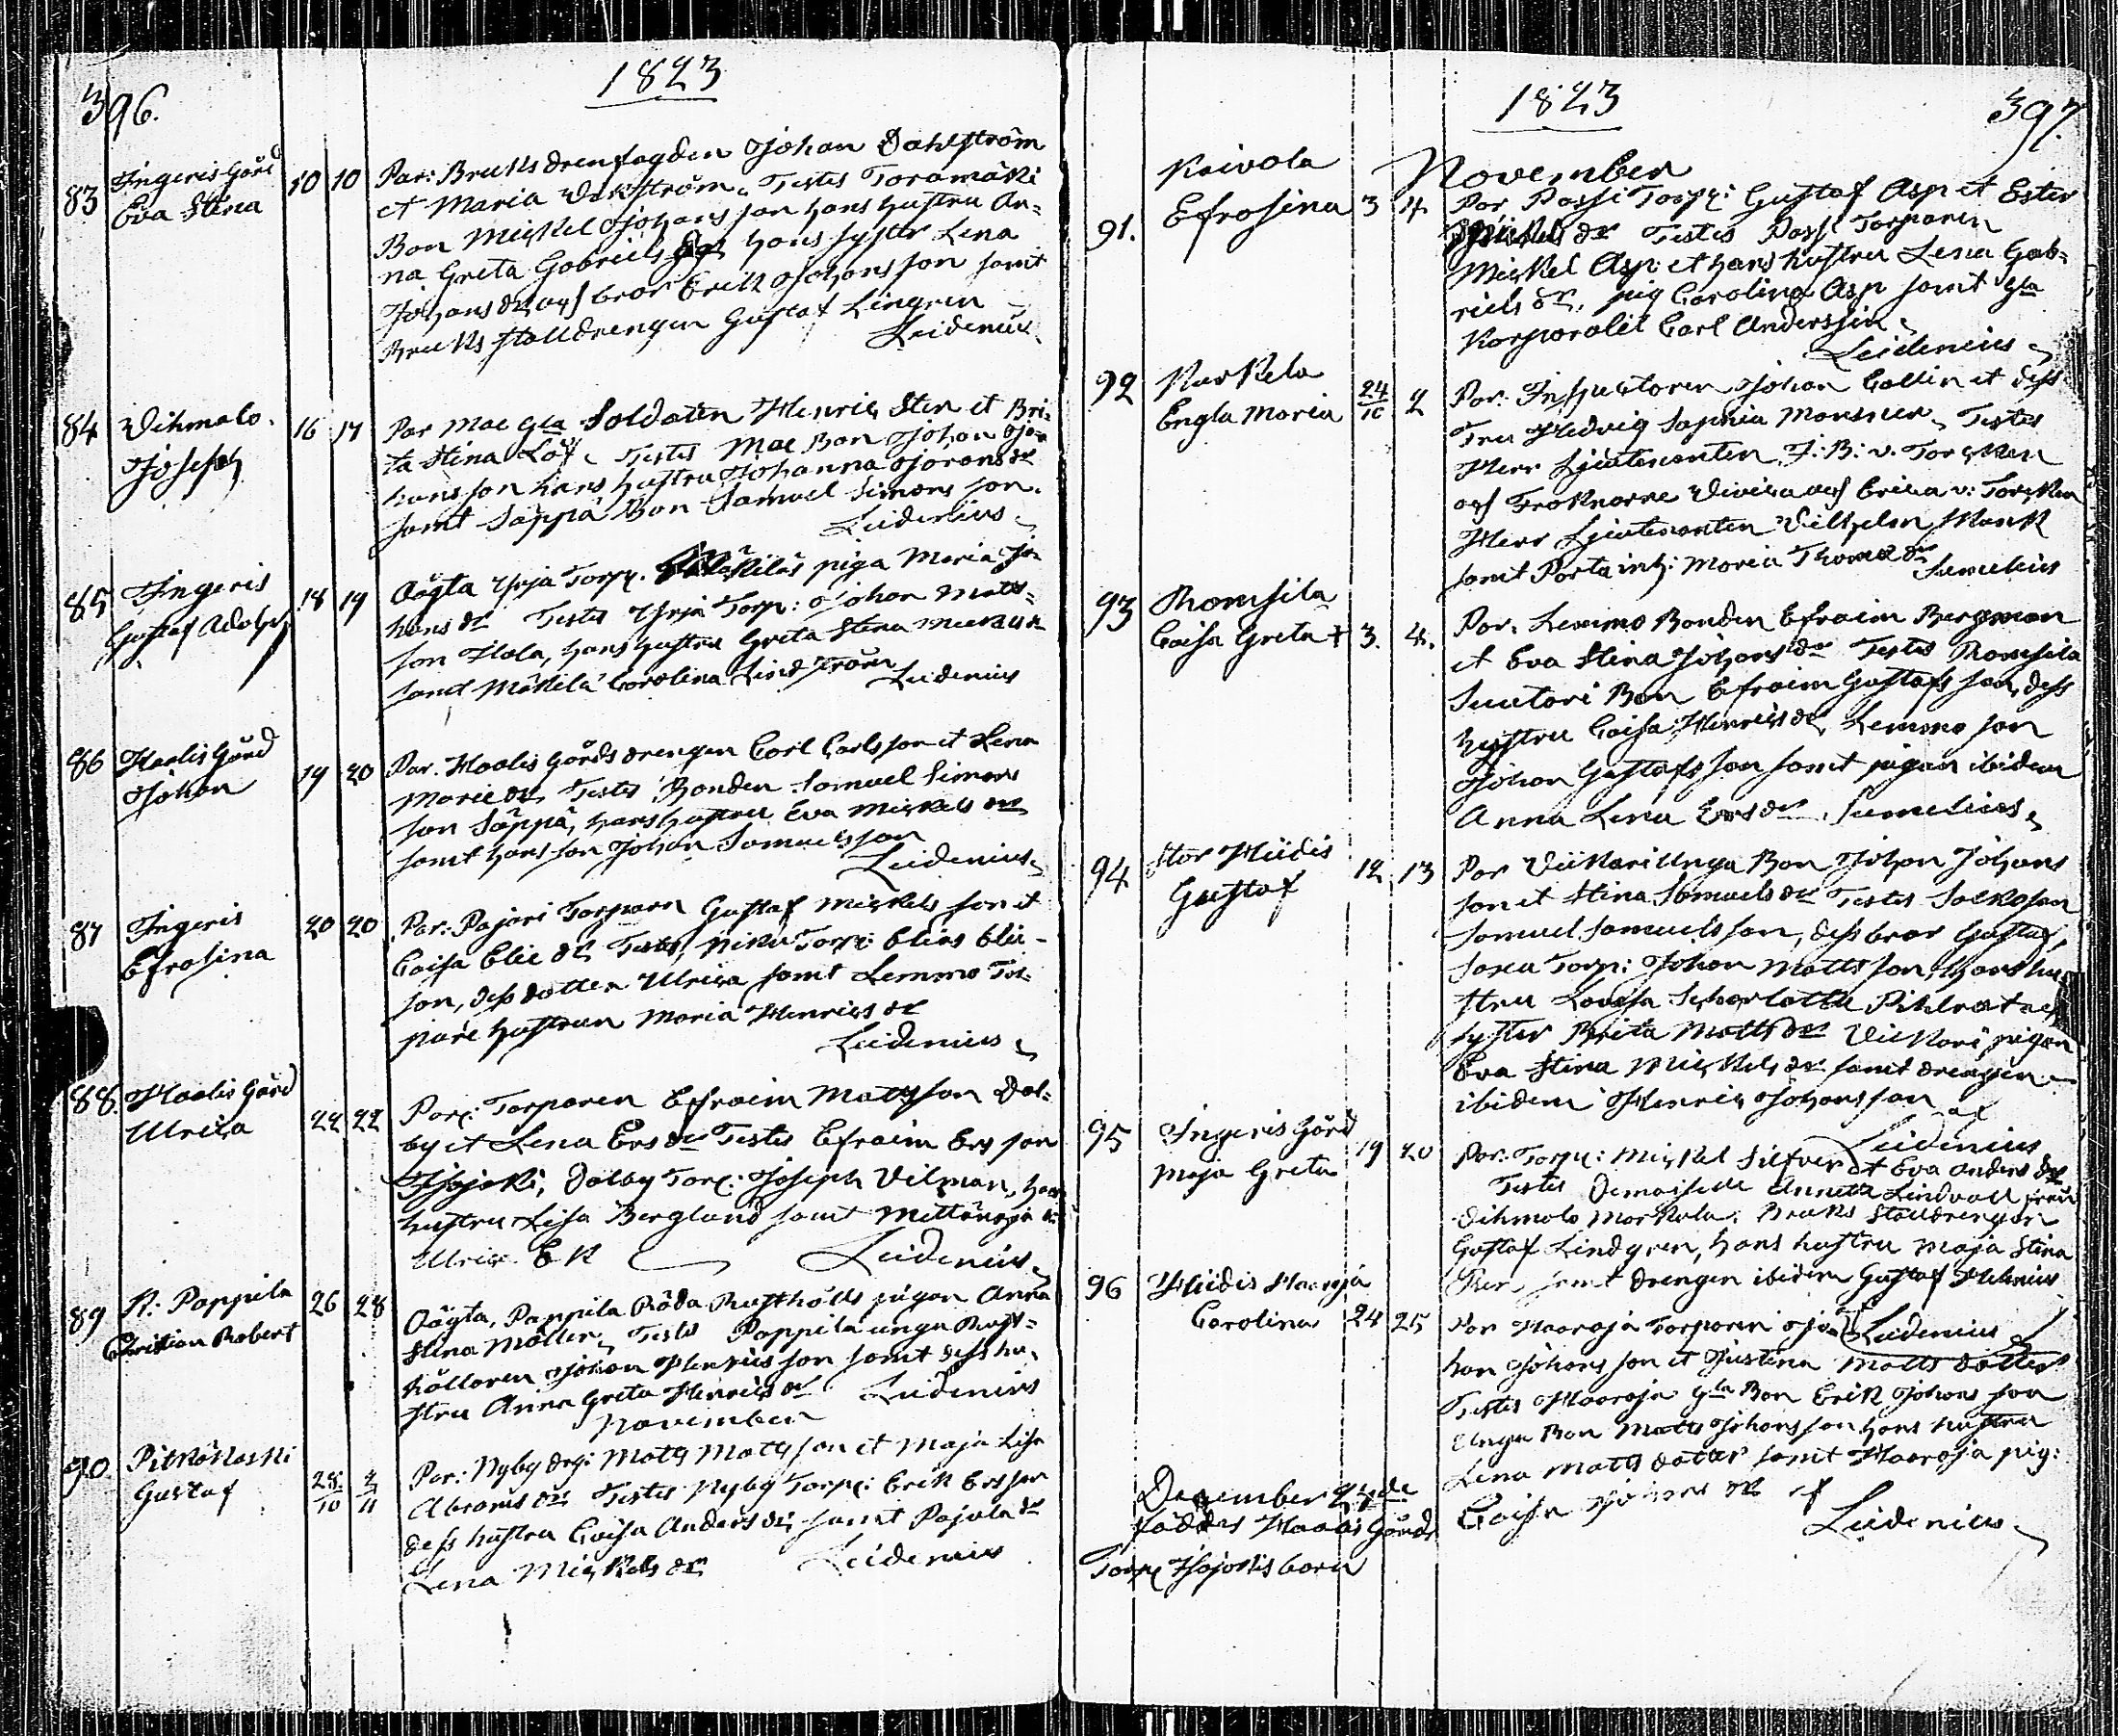 396.
1823
83 Ingeris Gård 10 10 Par: Bruks drengfogden Johan Dahlström
Eva Stina et Maria Testes Toramäki
Bon Mickel Johans son hans hustru An=
na Greta Gabriels hans syster Lena
Johans dr och bror Erik Johans son samt
Bruks stalldrengen Gustaf Lingren
Leidenius
84 Vihmalo. 16 17 Par Mae Gla Soldaten Henric Sten et Bri=
Joseph ta Stina Löf Testes Mae Bon Johan Jo=
hans son hans hustru Johanna Jorans dr
samt Säppä Bon Samuel Simons son.
Leidenius
85 Ingeris 18 19 Oägta Yrjä Torp. piga Maria Jo=
Gustaf Adolph hans dr Testes Yrjä Torp: Johan Matts=
son Hola, hans hustru Greta Stina
samt Mäkilä Carolina Lindström Leidenius
86 Haalis Gård 19 20 Par. Haalis Gårds drengen Carl Carls son et Lena
Johan Marie dr Testes Bonden Samuel Simons
son Säppä, hans hustru Eva Mickels dr
samt hans son Johan Samuels son
Leidenius
87 Ingeris 20 20 Par: Pajari Torparn Gustaf Mickels son et
Efrosina Caisa Elie dr Testes, Niku Torp: Elias Elie=
son, dess dotter Ulrica samt Lemmo Tor=
pare hustrun Maria Henrics dr
Leidenius
88. Haalis Gård 22 22 Par: Torparen Efraim Matts son Dal=
Ulrica by et Lena Ers dr Testes Efraim Ers son
Hojoki, Dalby Torp: Joseph Vilman, hans
hustru Lisa Berglund samt Mettänojä
Ulrica Ek Leidenius
89 N: Pappila 26 28 Oägta, Pappila Råda Rusthålls pigan Anna
Christian Robert Stina Möller, Testes Pappila unga Rust=
hållaren Johan Henrics son samt dess hu=
stru Anna Greta Henrics dr Leidenius
November
90 Pitkäkoski 28/10 2/11 Par: Nyby drg: Matts Matts son et Maja Lisa
Gustaf Abrams dr Testes Nyby Torp: Erik Ers son
dess hustru Caisa Anders dr samt Pajula dr
Lena Mickels dr Leidenius
1823
397.
November
Koivola Par Passi Torp: Gustaf Asp et Ester
91. Efrosina 3 4 dr Testes Passi Torparen
Mickel Asp et hans hustru Lena Gab=
riels dr, pig Carolina Asp samt Gla
Korporalit Carl Anderssin
Leidenius
92 Karkela 24/10 2 Par: Inspectoren Johan Collin et dess
Engla Maria Fru Hedvig Sophia Testes
Herr Ljeutenanten F: B: v: Torcken
och Fröknarne Vivica och Erica v: Torcken
Herr Ljeutenanten Vilhelm Munk
samt Porta inh: Maria Thomæ dr
Sumelius
93 Romsila Par: Lemmo Bonden Efraim Bergman
Caisa Greta + 3. 4. et Eva Stina Johans dr Testes Romsila
Suutari Bon Efraim Gustafs son, dess
hustru Caisa Henrics dr Lemmo son
Johan Gustafs son samt pigan ibidem
Anna Lena Ers dr. Sumelius
94 Stor Hiidis 12 13 Par Viikari Unga Bon Johan Johans
Gustaf son et Stina Samuels dr Testes Salko son
Samuel Samuels son, dess bror Gustaf,
Saxa Torp: Johan Matts son, hans hu=
stru Lovisa Scharlotta Pihlrot och
syster Brita Matts dr Viikari pigan
Eva Stina Mickels dr samt drengen
ibidem Henric Johans son af
Leidenius
95 Ingeris Gård 19 20 Par: Torp: Mickel Silfver et Eva Anders dr
Maja Greta Testes Demoiselle Annetta Lindvall från
Vihmalo Markula. Bruks Stalldrengen
Gustaf Lindgren, hans hustru Maja Stina
samt drengen ibidem Gustaf Helenius
Leidenius
96 Hiidis Haaroja Par Haaroja Torparen Jo=
Carolina 24 25 han Johans son et Justina Matts dotter
Testes Haaroja Gla Bon Erik Johans son
Unga Bon Matts Johans son hans hustru
Lena Matts dotter samt Haaroja pig:
Caisa Johans dr af
Leidenius
December 27de
föddes Haalis Gårds
Torp Hojokis barn